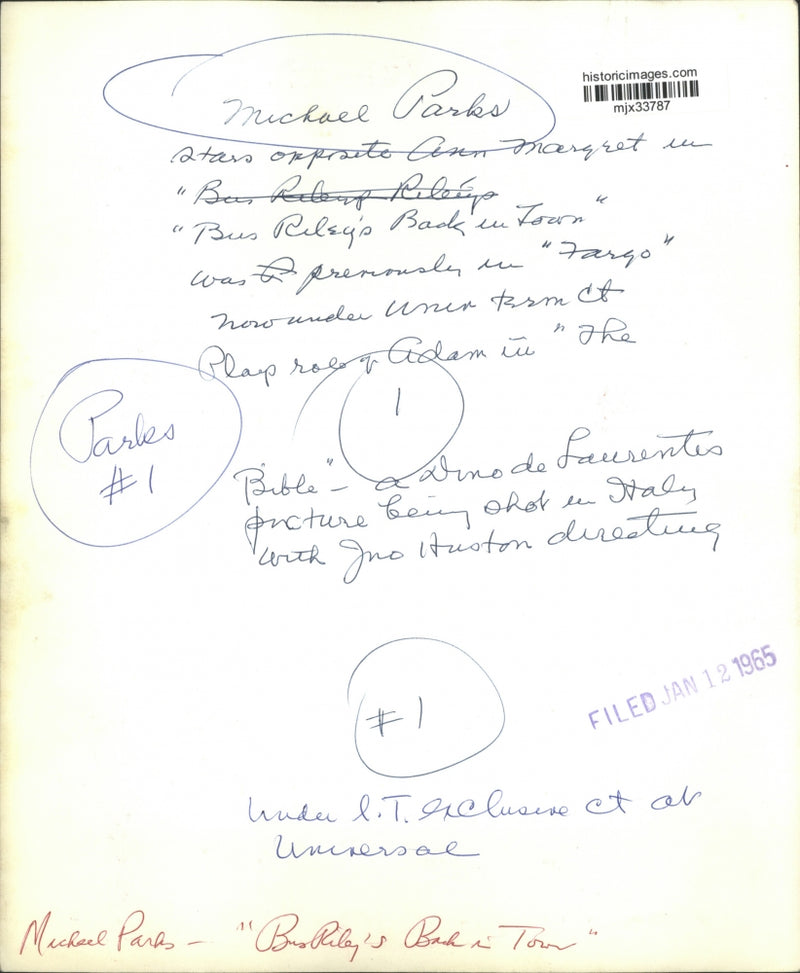 historicimages.com
mjx33787
Michael Parks
Stars opposite Ann Margret in
"Bus Rileys Rileys
"Bus Riley's Back in Town"
was previously in "Fargo"
now under Univ term ct
Plays role of Adam in "The
1
Parks
#1
Bible" - a Dino de Laurentis
picture being shot in Italy
with Jno Huston directing
#1
FILED JAN 12 1965
Under l.T. exclusive ct at
Universal
Michael Parks - "Bus Riley's Back in Town"